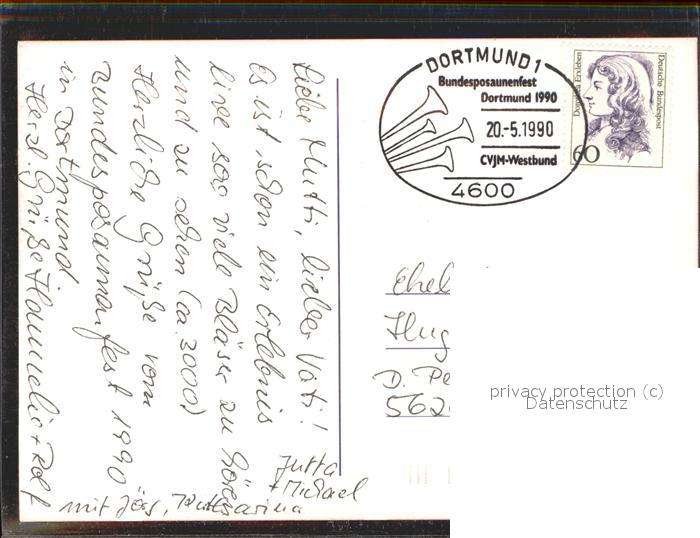 Lieber Mutti, lieber Vati!
Es ist schon ein Erlebnis
live soo viele Bläser zu hören
und zu sehen (ca. 3000)
Herzliche Grüße vom
Bundesposaunenfest 1990
in Dortmund
Herzl. Grüße Hannelie + Rolf
Jutta
+ Michael
mit Jörg,
DORTMUND 1
Bundesposaunenfest
Dortmund 1990
20.-5.1990
CVJM-Westbund
4600
Dorothea Erxleben
Deutsche Bundespost
60
Ehel
Flug
D. Pe
562
privacy protection (c)
Datenschutz